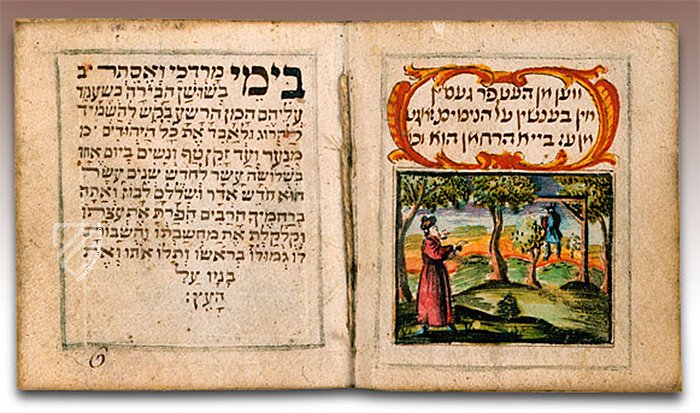 ווען מן פר געסין
אין בענטשין על הניסים
מן בייא הרחמן הוא וכו
בימי מרדכי ואסתר יב
בשושן הבירה כשעמד
עליהם המן הרשע בקש להשמיד
להרוג ולאבד את כל היהודים מ
מנער ועד זקן טף ונשים ביום אחד
בשלושה עשר לחדש שנים עשר
הוא חדש אדר ושללם לבוז ואתה
ברחמיך הרבים הפרת את עצתו
וקלקלת את מחשבתו והשבות
לו גמולו בראשו ותלו אותו ואת
בניו על
העץ:
6